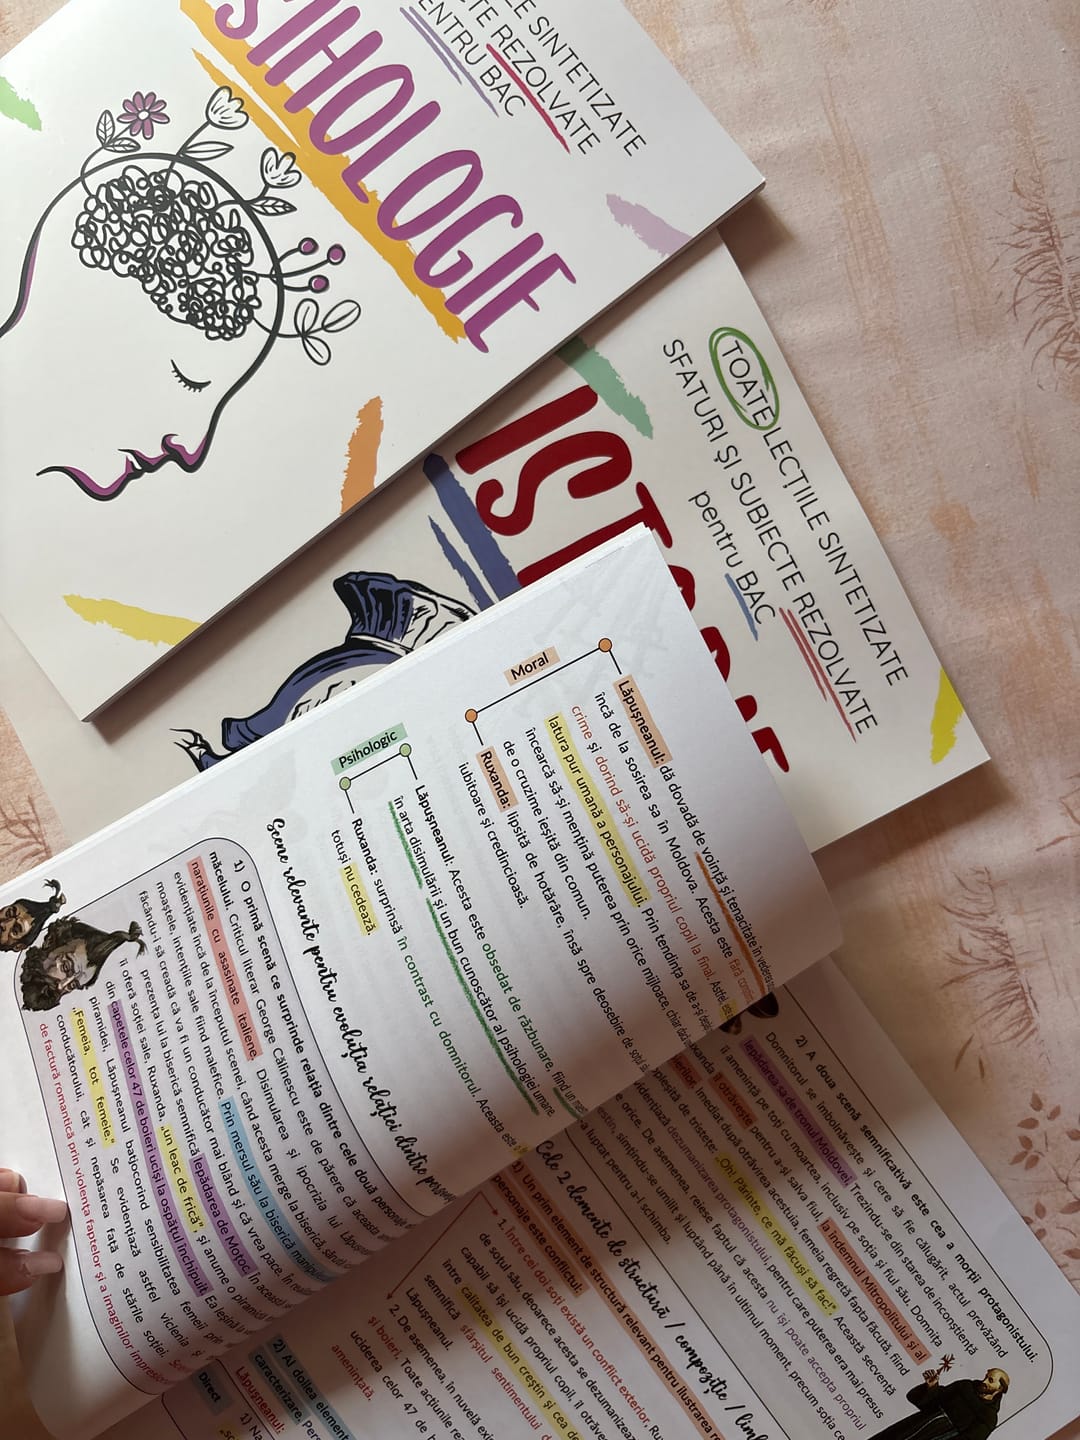 PSIHOLOGIE
LE SINTETIZATE
REZOLVATE
PENTRU BAC
TOATE LECȚIILE SINTETIZATE
SFATURI ȘI SUBIECTE REZOLVATE
pentru BAC
Moral
Lăpușneanul: dă dovadă de voință și tenacitate în vederea
încă de la sosirea sa în Moldova. Acesta este
crime și dorind să-și ucidă propriul copil la final. Astfel,
latura pur umană a personajului. Prin tendința sa de a-și
încearcă să-și mențină puterea prin orice mijloace, chiar
de o cruzime ieșită din comun.
Ruxanda: lipsită de hotărâre, însă spre deosebire de soțul
iubitoare și credincioasă.
Psihologic
Lăpușneanul: Acesta este obsedat de răzbunare, fiind un
în arta disimulării și un bun cunoscător al psihologiei umane.
Ruxanda: surprinsă în contrast cu domnitorul. Aceasta este
totuși nu cedează.
Scene relevante pentru evoluția relației dintre
1) O primă scenă ce surprinde relația dintre cele două personaje
măcelului. Criticul literar George Călinescu este de părere că această
narațiunile cu asasinate italiene. Disimularea și ipocrizia lui
evidențiate încă de la începutul scenei, când acesta merge la biserică,
moaștele, intențiile sale fiind malefice. Prin mersul său la biserică
făcându-i să creadă că va fi un conducător mai blând și că vrea pace. În
prezența lui la biserică semnifică lepădarea de Moțoc. În
îi oferă soției sale, Ruxanda, „un leac de frică” și anume o
din capetele celor 47 de boieri uciși la ospățul închipuit. Ea
piramidei, Lăpușneanul batjocorind sensibilitatea femeii prin
„Femeia, tot femeie.” Se evidențiază astfel viclenia și
conducătorului, cât și nepăsarea față de stările soției.
de factură romantică prin violența faptelor și a imaginilor
2) A doua scenă semnificativă este cea a morții protagonistului.
Domnitorul se îmbolnăvește și cere să fie călugărit, actul prevăzând
lepădarea sa de tronul Moldovei. Trezindu-se din starea de inconștiență
îi amenință pe toți cu moartea, inclusiv pe soția și fiul său. Domnița
îl otrăvește pentru a-și salva fiul, la îndemnul Mitropolitului și al
imediat după otrăvirea acestuia, femeia regretă fapta făcută, fiind
de tristețe: „Oh! Părinte, ce mă făcuși să fac!” Această secvență
dezumanizarea protagonistului, pentru care puterea era mai presus
orice. De asemenea, reiese faptul că acesta nu își poate accepta propriul
simțindu-se umilit și luptând până în ultimul moment, precum soția
a luptat pentru a-l schimba.
Cele 2 elemente de structură / compoziție /
1) Un prim element de structură relevant pentru ilustrarea
personaje este conflictul:
1. Între cei doi soți există un conflict exterior,
de soțul său, deoarece acesta se dezumanizează
capabil să își ucidă propriul copil, îl
între calitatea de bun creștin și cea de
semnifică sfârșitul sentimentului
Lăpușneanul.
2. De asemenea, în nuvelă
și boieri. Toate acțiunile
uciderea celor 47 de
amenințată.
2) Al doilea element
caracterizare.
Direct
Lăpușneanul: